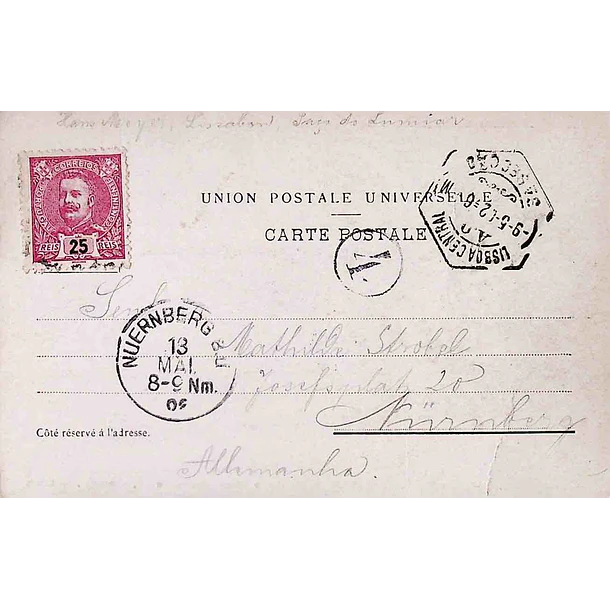 Hans Meyer, Lissabon, Paço do Lumiar
CORREIOS
REIS 25 REIS
UNION POSTALE UNIVERSELLE
CARTE POSTALE
LISBOA CENTRAL
1
NUERNBERG
13
MAI.
8-9 Nm.
Mathilde Strobel
Josefsplatz 20
Nürnberg
Côté réservé à l'adresse.
Allemanha.